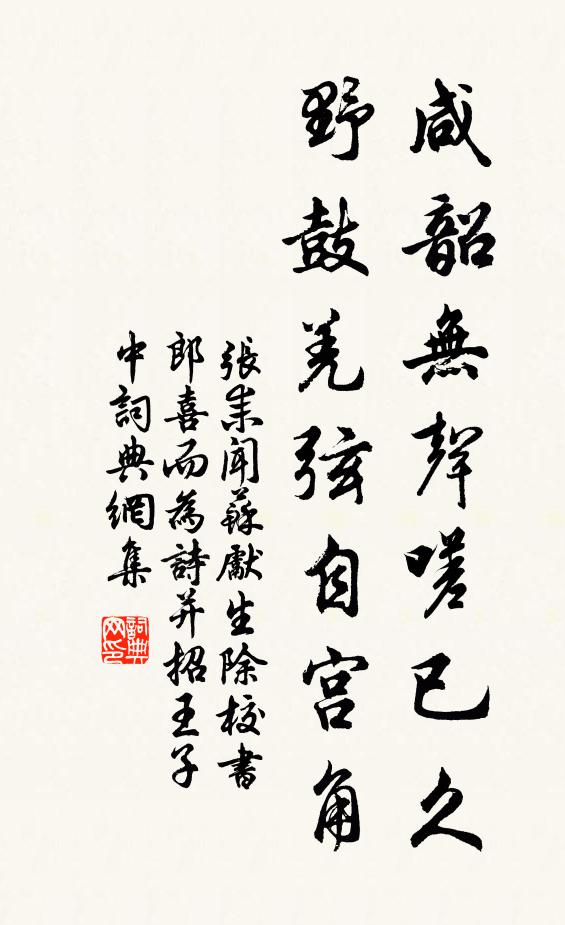 咸韶無聲嗟已久
野鼓羌弦自宮角
張耒聞蘇獻生除校書
郎喜而為詩并招王子
中詞典網集
詞典网印